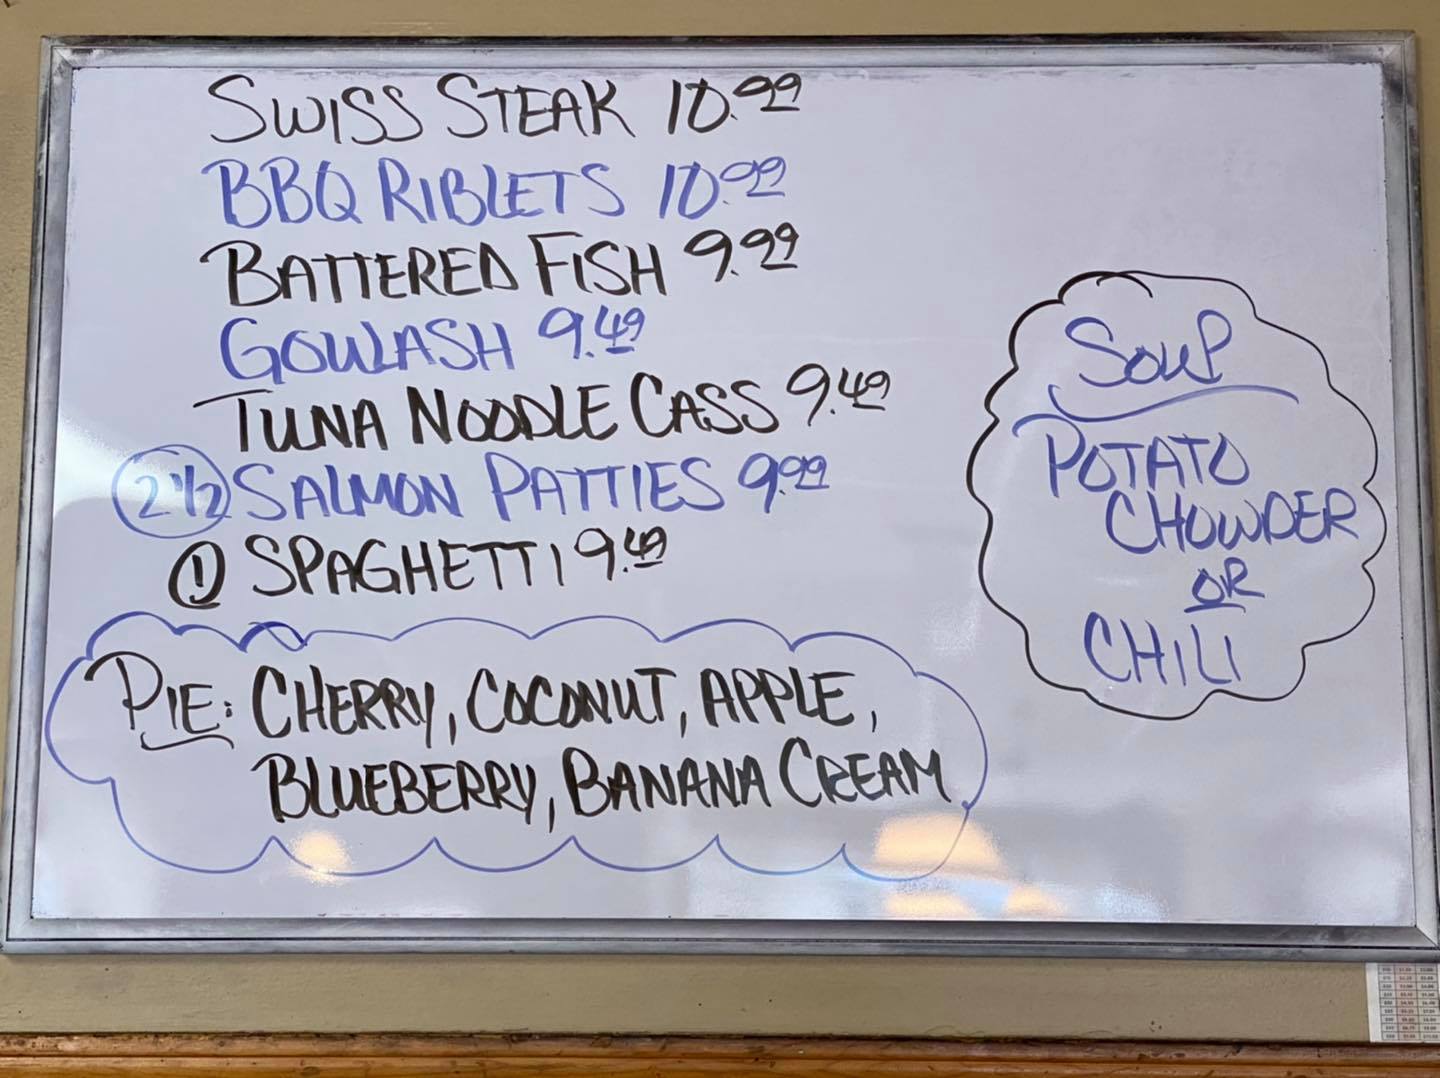 SWISS STEAK 10.99
BBQ RIBLETS 10.99
BATTERED FISH 9.99
GOWLASH 9.49
TUNA NOODLE CASS 9.49
2 1/2 SALMON PATTIES 9.99
1 SPAGHETTI 9.49
PIE: CHERRY, COCONUT, APPLE,
BLUEBERRY, BANANA CREAM
SOUP
POTATO
CHOWDER
OR
CHILI